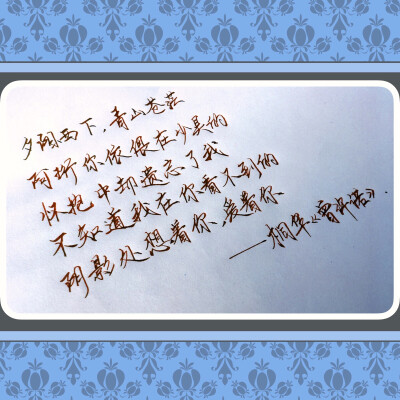 夕阳西下，青山苍茫
阿珩你依偎在少昊的
怀抱中却遗忘了我
不知道我在你看不到的
阴影处想着你、爱着你
——桐华《曾许诺》.